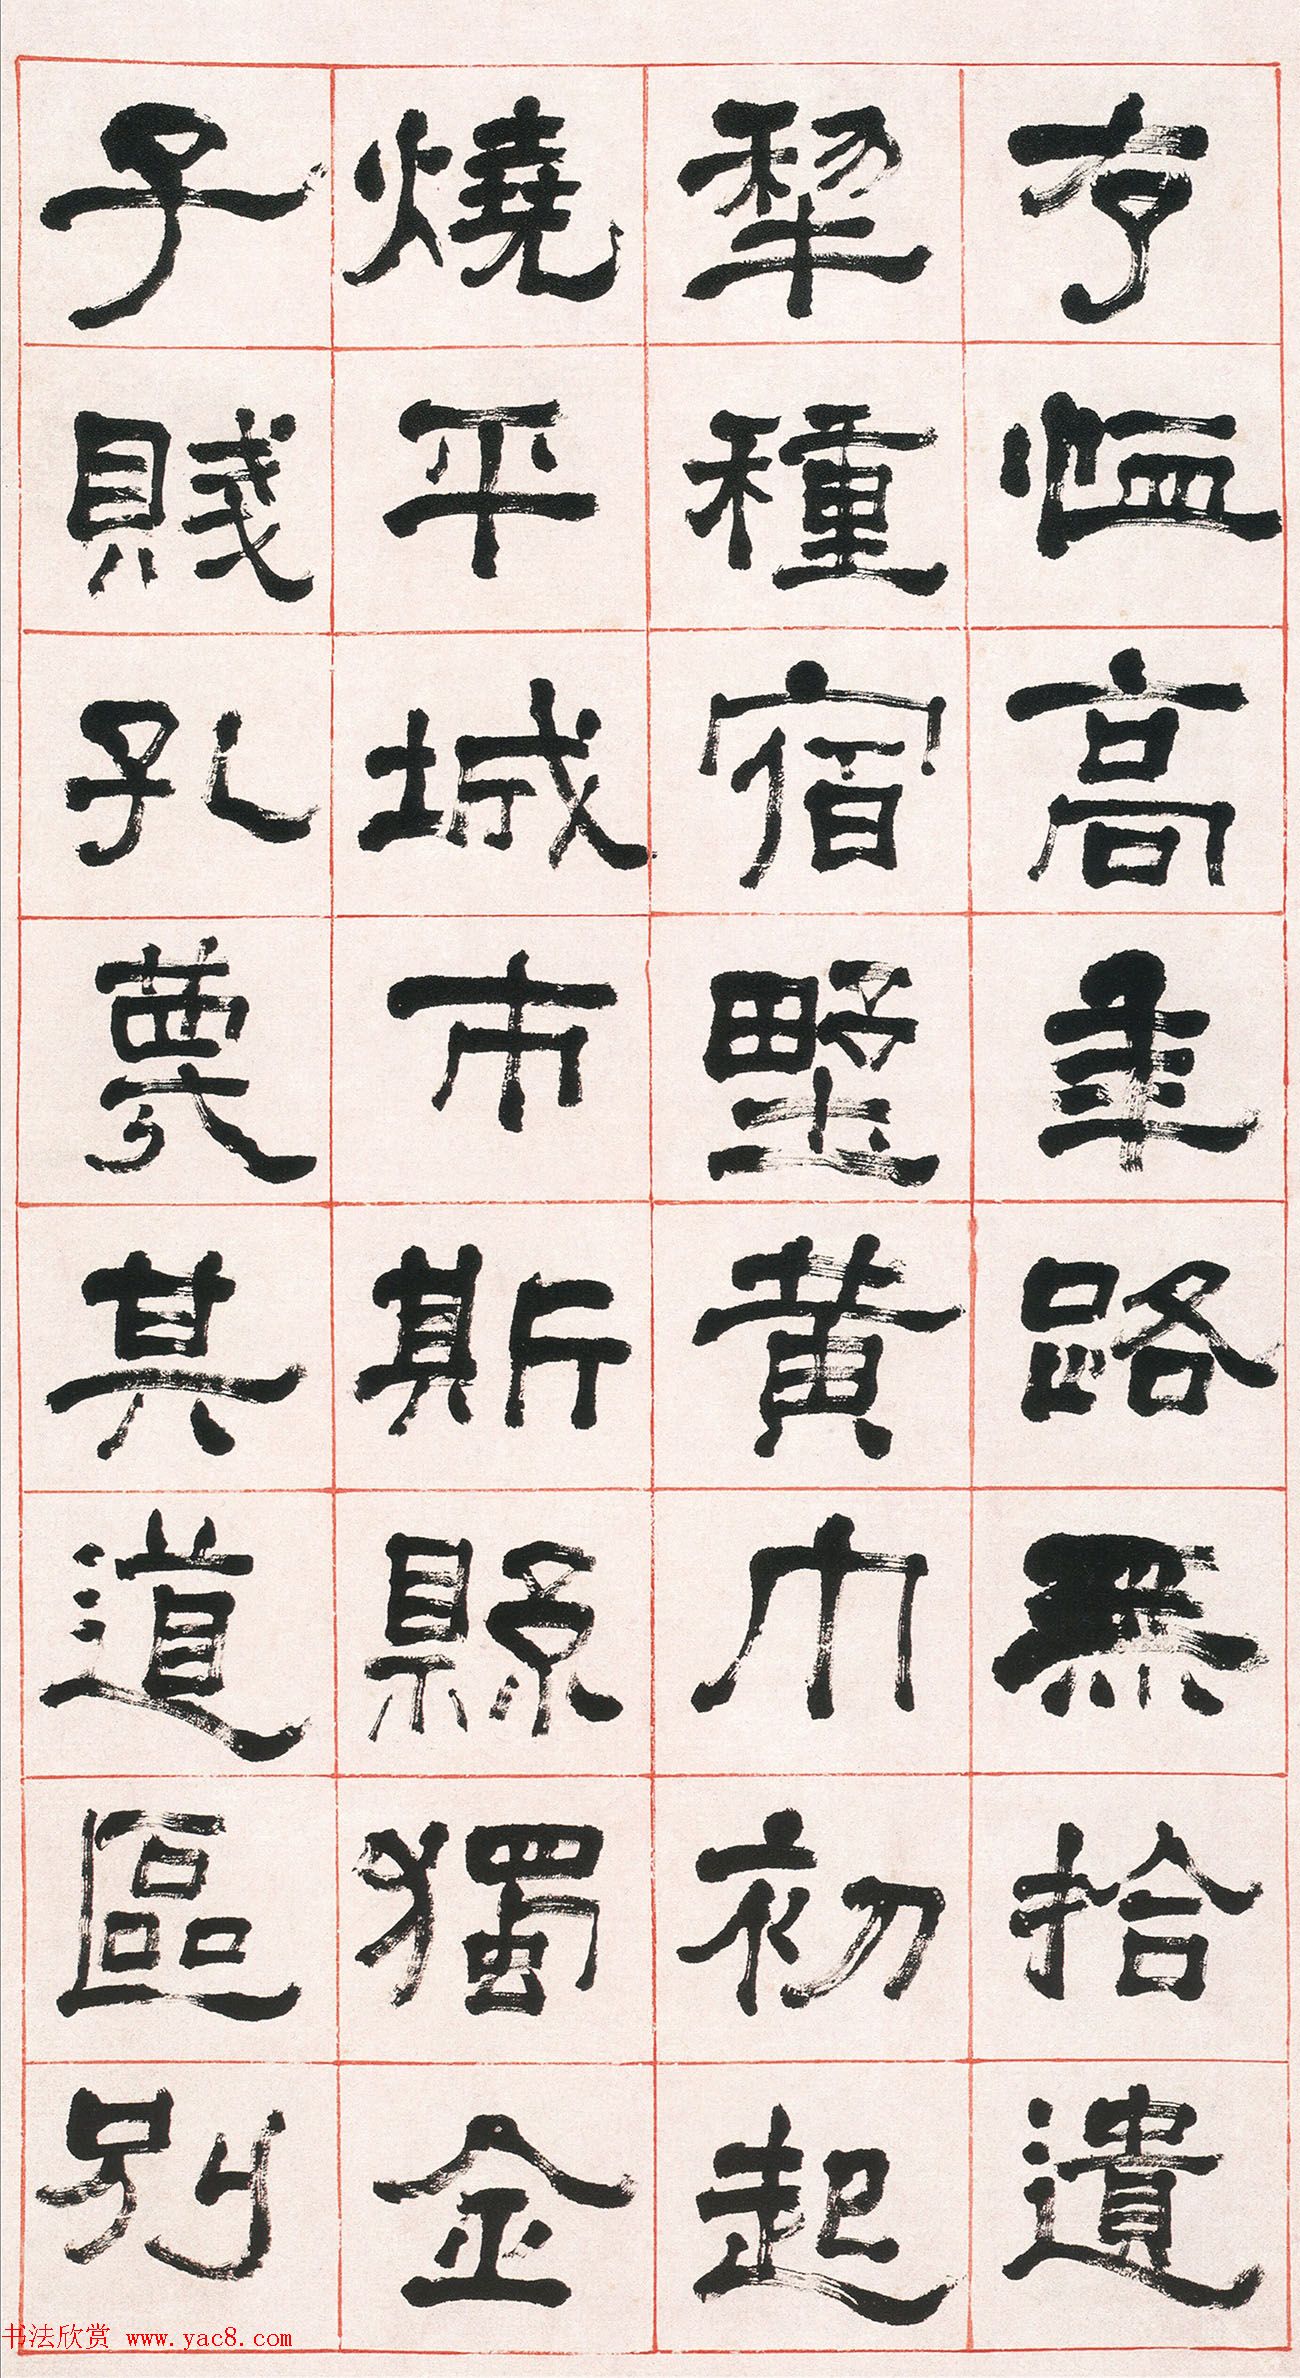 存恤高年路無拾遺
犁種宿野黃巾初起
燒平城市斯縣獨全
子賤孔蔑其道區別
书法欣赏 www.yac8.com